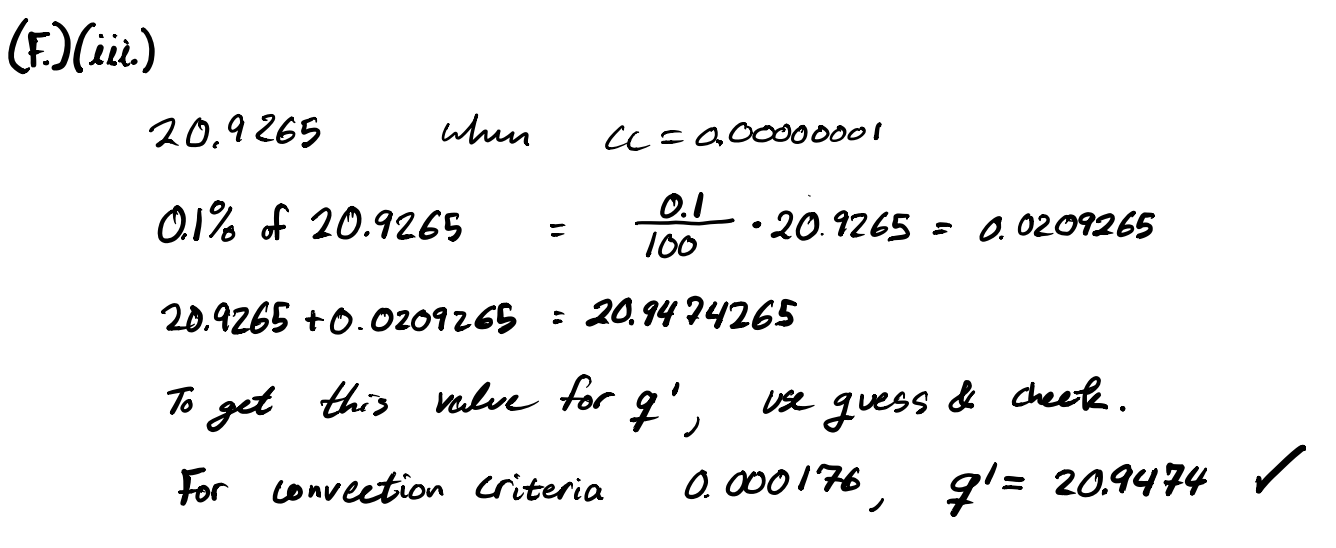 (F.)(iii.)
20.9265 when cc = 0.00000001
0.1% of 20.9265 = 0.1/100 · 20.9265 = 0.0209265
20.9265 + 0.0209265 = 20.9474265
To get this value for q', use guess & check.
For convection criteria 0.000176, q' = 20.9474 ✓